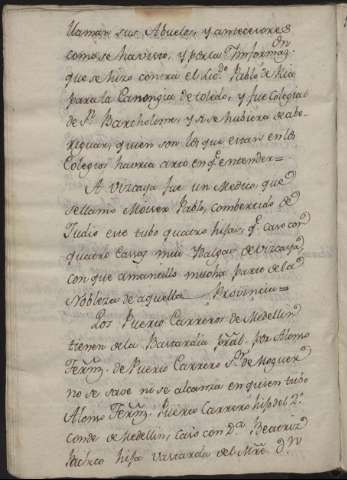 llaman, sus Abuelos, y antecesores
como se ha visto, y por la Informaz.on
que se hizo contra el Lic.do Pablo de
para la Canongia de toledo, y fue Colegial
de S.n Bartholome, y si se hubiera de abe
riguar, quien son los que erran en los
Colegios havria arto en q.e entender =
A Vizcaya fue un Medico, que
se llamo Moiser Pablo, combercido de
Judio este tubo quatro hijas, q.e caso con
quatro Casas mui Balgas de Vizcaya,
con que amancillo mucha parte de la
Nobleza de aquella Provincia =
Los Puerto Carreros de Medellin
tienen otra Bastardia p.ral por Alonso
Fern.z de Puerto Carrero S.or de Moguer
no se save ni se alcanza en quien tubo
Alonso Fern.z Puerto Carrero hijo del 2.o
Conde de Medellin, Caso con D.a Beatriz
Pacheco hija vastarda del Mre D.n